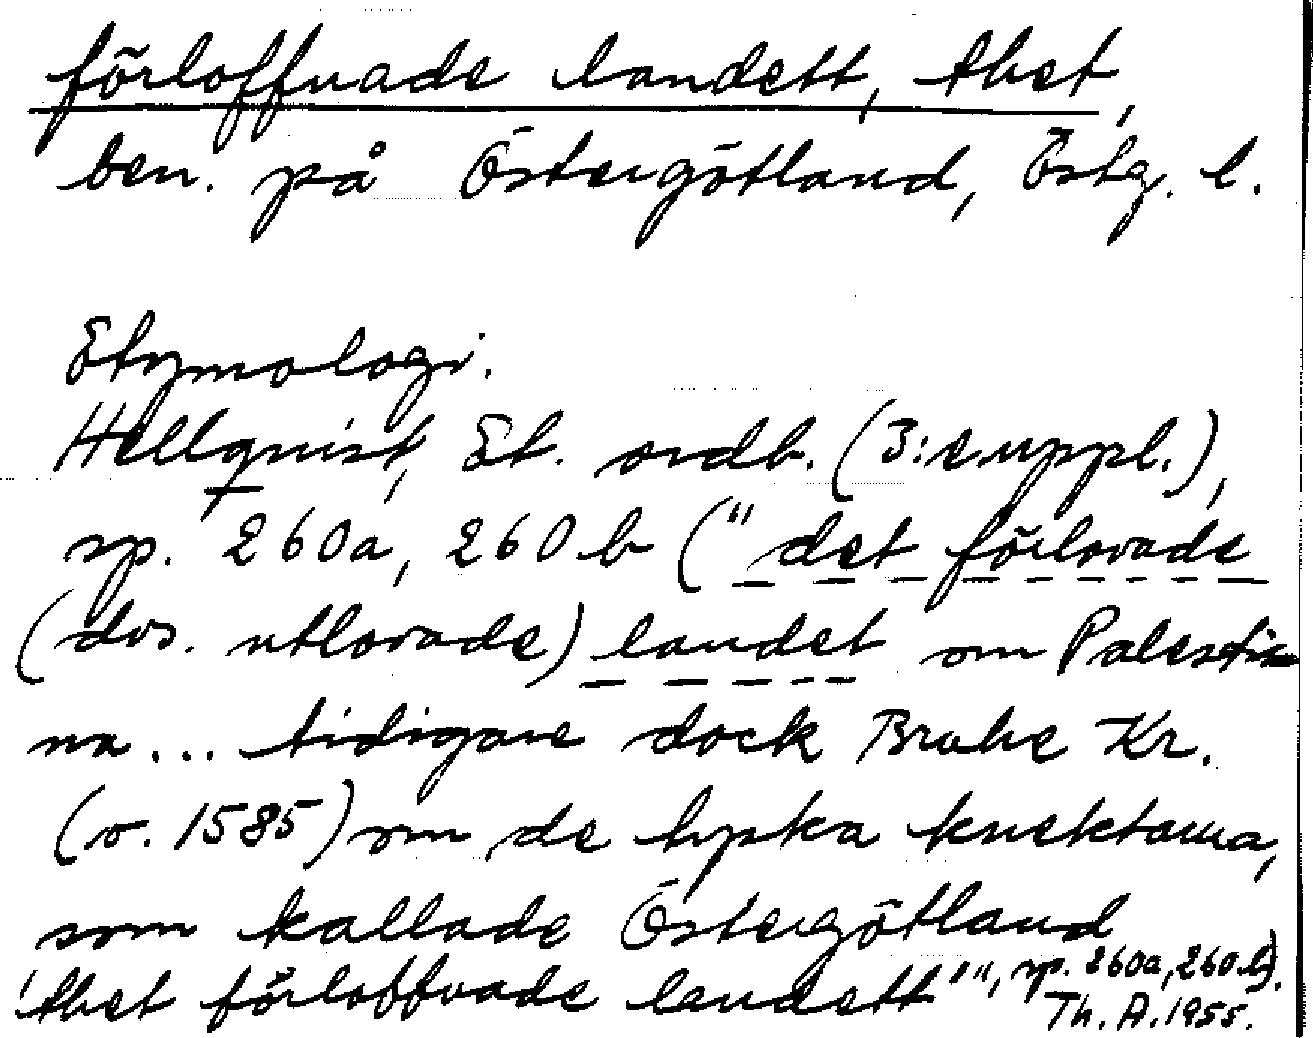 förloffuade landett, thet,
ben. på Östergötland, Östg. l.
Etymologi.
Hellquist, Et. ordb. (3:e uppl.),
sp. 260a, 260 b ("det förlovade
(dvs. utlovade) landet om Palesti-
na... tidigare dock Brahe Kr.
(o. 1585) om de tyska knektarna,
som kallade Östergötland
'thet förloffuade landett'", sp. 260a, 260 b).
Th. A. 1955.